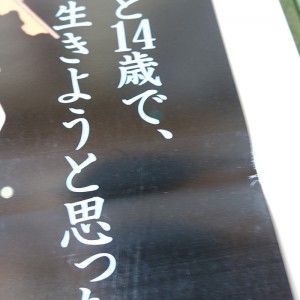 と14歳で、
生きようと思った